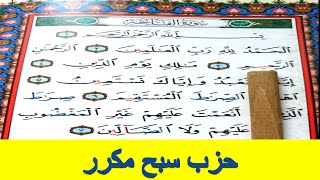 سورة الفاتحة
بسم الله الرحمن الرحيم
الحمد لله رب العلمين الرحمن
الرحيم ملك يوم الدين
نعبد وإياك نستعين
الصرط المستقيم صرط
أنعمت عليهم غير المغضوب
عليهم ولا الضالين
حزب سبح مكرر